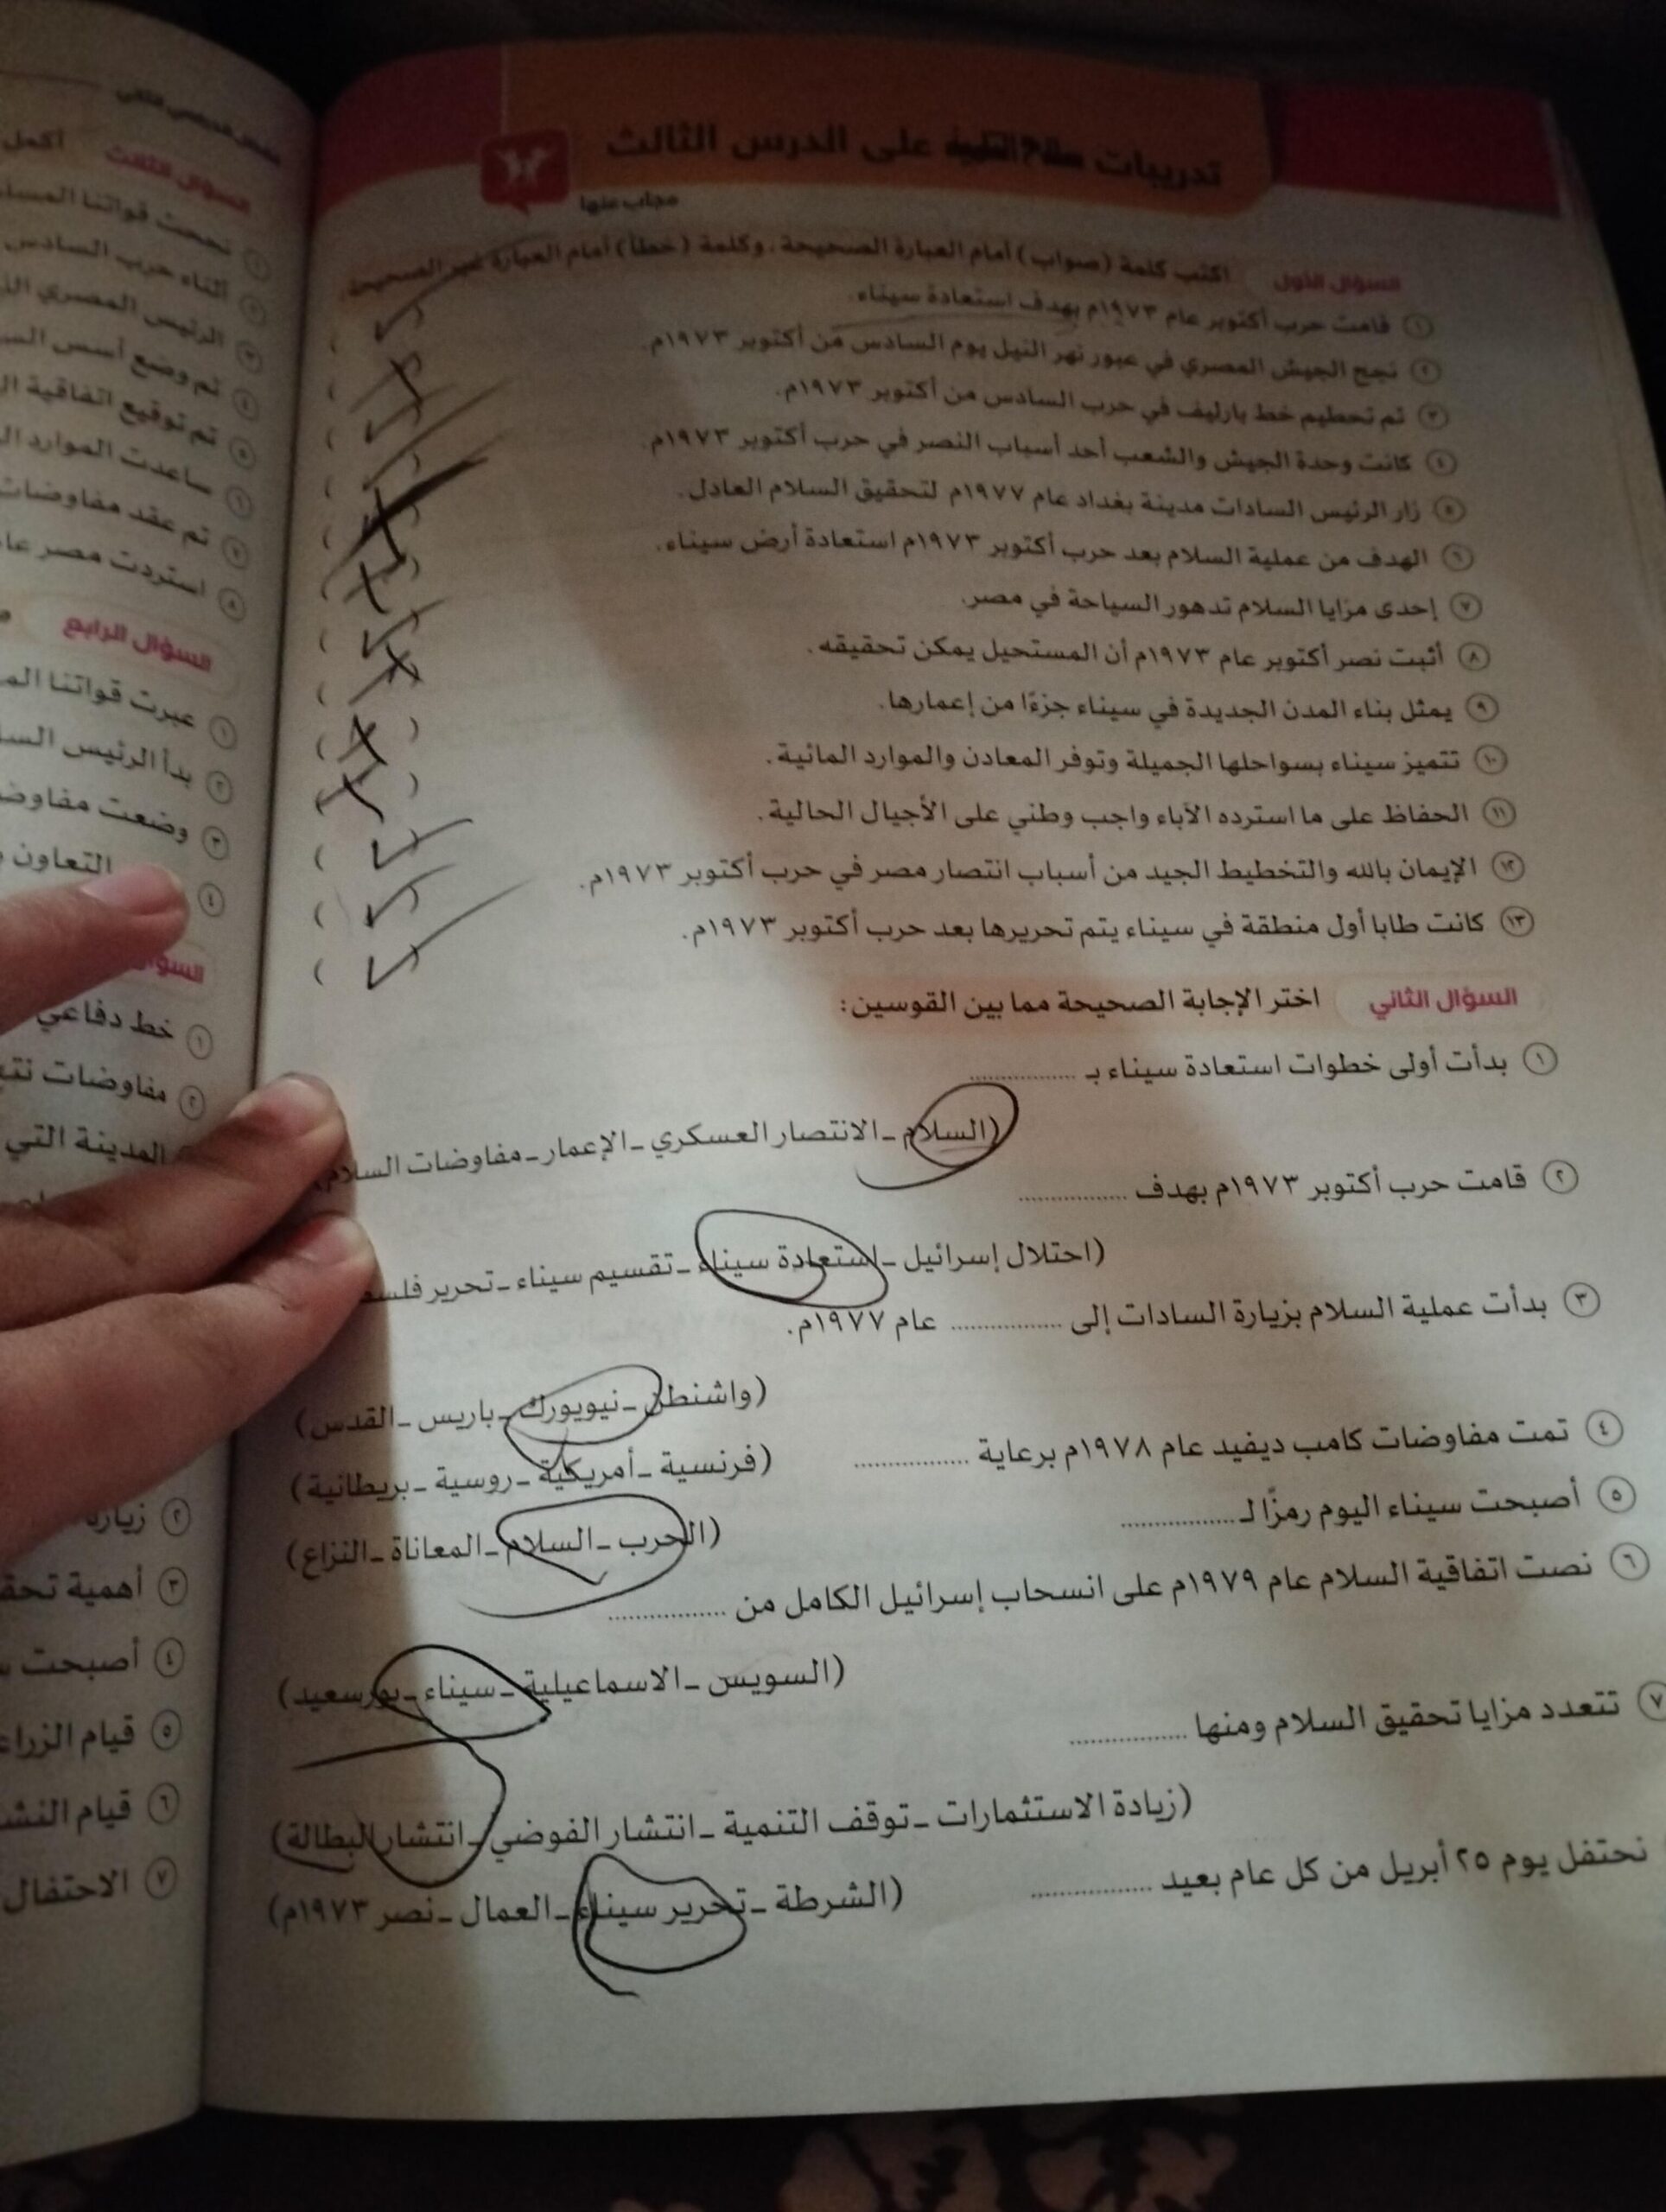 تدريبات على الدرس الثالث
مجاب عنها
السؤال الأول اكتب كلمة (صواب) أمام العبارة الصحيحة، وكلمة (خطأ) أمام العبارة غير الصحيحة:
١ قامت حرب أكتوبر عام ١٩٧٣م بهدف استعادة سيناء.
٢ نجح الجيش المصري في عبور نهر النيل يوم السادس من أكتوبر ١٩٧٣م.
٣ تم تحطيم خط بارليف في حرب السادس من أكتوبر ١٩٧٣م.
٤ كانت وحدة الجيش والشعب أحد أسباب النصر في حرب أكتوبر ١٩٧٣م.
٥ زار الرئيس السادات مدينة بغداد عام ١٩٧٧م لتحقيق السلام العادل.
٦ الهدف من عملية السلام بعد حرب أكتوبر ١٩٧٣م استعادة أرض سيناء.
٧ إحدى مزايا السلام تدهور السياحة في مصر.
٨ أثبت نصر أكتوبر عام ١٩٧٣م أن المستحيل يمكن تحقيقه.
٩ يمثل بناء المدن الجديدة في سيناء جزءًا من إعمارها.
١٠ تتميز سيناء بسواحلها الجميلة وتوفر المعادن والموارد المائية.
١١ الحفاظ على ما استرده الآباء واجب وطني على الأجيال الحالية.
١٢ الإيمان بالله والتخطيط الجيد من أسباب انتصار مصر في حرب أكتوبر ١٩٧٣م.
١٣ كانت طابا أول منطقة في سيناء يتم تحريرها بعد حرب أكتوبر ١٩٧٣م.
السؤال الثاني اختر الإجابة الصحيحة مما بين القوسين:
١ بدأت أولى خطوات استعادة سيناء بـ ................
(السلام - الانتصار العسكري - الإعمار - مفاوضات السلام)
٢ قامت حرب أكتوبر ١٩٧٣م بهدف ................
(احتلال إسرائيل - استعادة سيناء - تقسيم سيناء - تحرير
٣ بدأت عملية السلام بزيارة السادات إلى ................ عام ١٩٧٧م.
(واشنطن - نيويورك - باريس - القدس)
٤ تمت مفاوضات كامب ديفيد عام ١٩٧٨م برعاية ................
(فرنسية - أمريكية - روسية - بريطانية)
٥ أصبحت سيناء اليوم رمزًا لـ ................
(الحرب - السلام - المعاناة - النزاع)
٦ نصت اتفاقية السلام عام ١٩٧٩م على انسحاب إسرائيل الكامل من ................
(السويس - الاسماعيلية - سيناء - بورسعيد)
٧ تتعدد مزايا تحقيق السلام ومنها ................
(زيادة الاستثمارات - توقف التنمية - انتشار الفوضي - انتشار البطالة)
نحتفل يوم ٢٥ أبريل من كل عام بعيد ................
(الشرطة - تحرير سيناء - العمال - نصر ١٩٧٣م)
السؤال الثالث أكمل
١ نجحت قواتنا
٢ أثناء حرب السادس
٣ الرئيس المصري
٤ تم وضع أسس
٥ تم توقيع اتفاقية
٦ ساعدت الموارد
٧ تم عقد مفاوضات
٨ استردت مصر
السؤال الرابع
١ عبرت قواتنا
٢ بدأ الرئيس
٣ وضعت
التعاون
٤
١ خط دفاعي
٢ مفاوضات
المدينة التي
٢ زيارة
٣ أهمية
٤ أصبحت
٥ قيام
٦ قيام
٧ الاحتفال